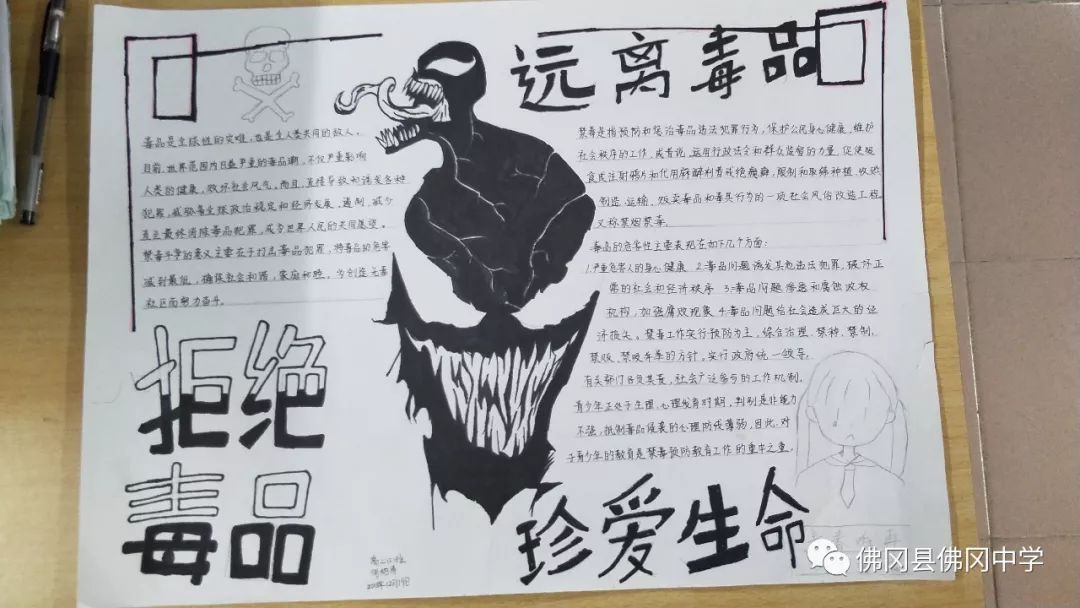 远离毒品
毒品是全球性的灾难，也是全人类共同的敌人。
目前，世界范围内日益严重的毒品潮，不仅严重影响
人类的健康，败坏社会风气，而且，直接导致和诱发各种
犯罪，威胁着全球政治稳定和经济发展，遏制、减少
直至最终消除毒品犯罪，成为世界人民的共同愿望。
禁毒斗争的意义主要在于打击毒品犯罪，将毒品的危害
减到最低，确保社会和谐，家庭和睦，为创造无毒
社区而努力奋斗。
禁毒是指预防和惩治毒品违法犯罪行为，保护公民身心健康，维护
社会秩序的工作，或者说，运用行政法令和群众监督的力量，促使吸
食或注射鸦片和化用麻醉剂者戒绝瘾癖，限制和取缔种植、收燃
制造、运输、贩卖毒品和毒具行为的一项社会风俗改造工程
又称禁烟禁毒。
毒品的危害性主要表现在如下几个方面：
1.严重危害人的身心健康 2.毒品问题诱发其他违法犯罪，破坏正
常的社会和经济秩序 3.毒品问题渗透和腐蚀政权
机构，加强腐败现象 4.毒品问题给社会造成巨大的经
济损失。禁毒工作实行预防为主，综合治理，禁种、禁制、
禁贩、禁吸并举的方针。实行政府统一领导，
有关部门各负其责，社会广泛参与的工作机制。
青少年正处于生理、心理发育时期，判别是非能力
不强，抵制毒品侵袭的心理防线薄弱，因此，对
于青少年的教育是禁毒预防教育工作的重中之重。
拒绝
毒品
珍爱生命
佛冈县佛冈中学